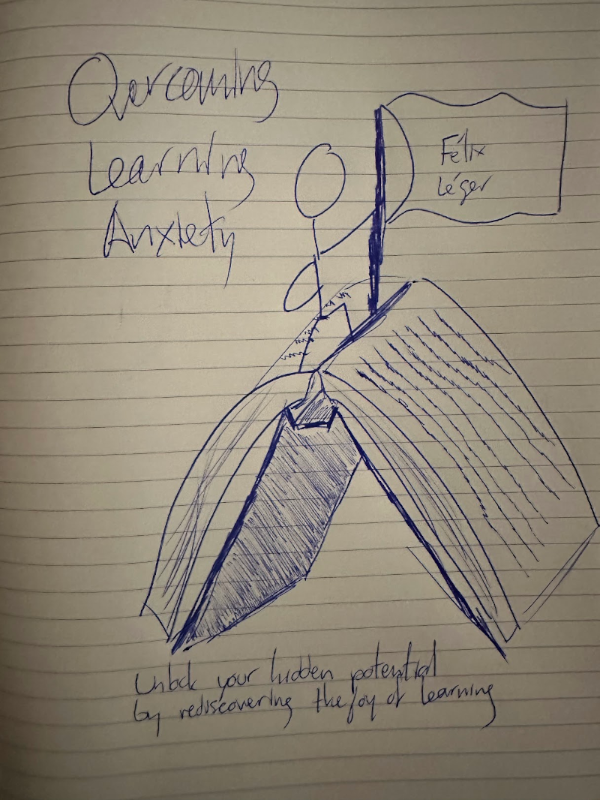 Overcoming
Learning
Anxiety
Félix
Léger
Unlock your hidden potential
by rediscovering the joy of learning